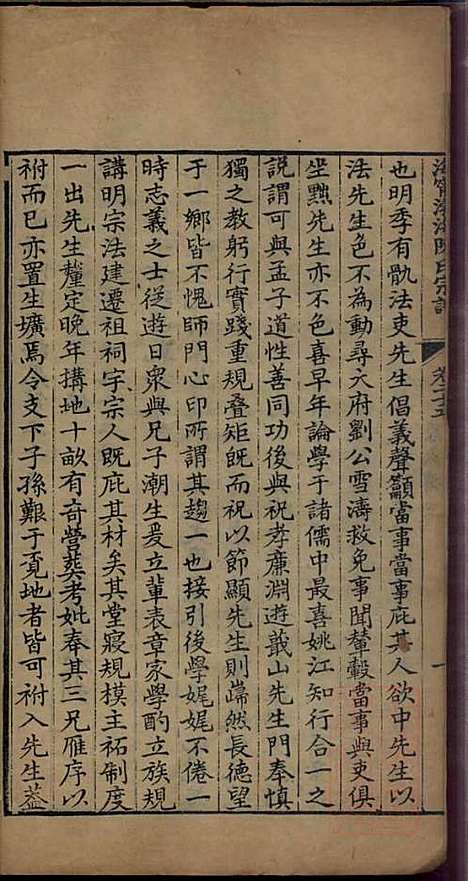 海寧渤海陳氏宗譜 卷二十五 一
也明季有骩法吏先生倡義聲籲當事當事庇其人欲中先生以
法先生色不為動尋大府劉公雪濤救免事聞輦轂當事與吏俱
坐黜先生亦不色喜早年論學于諸儒中最喜姚江知行合一之
説謂可與孟子道性善同功後與祝孝廉淵遊蕺山先生門奉慎
獨之教躬行實踐重規叠矩既而祝以節顯先生則耑然長德望
于一鄉皆不愧師門心印所謂其趨一也接引後學娓娓不倦一
時志義之士從遊日衆與兄子潮生爰立輩表章家學酌立族規
講明宗法建遷祖祠宇宗人既庇其材矣其堂寢規模主祏制度
一出先生釐定晚年搆地十畝有奇營葬考妣奉其三兄雁序以
祔而已亦置生壙焉令支下子孫艱于覓地者皆可祔入先生葢